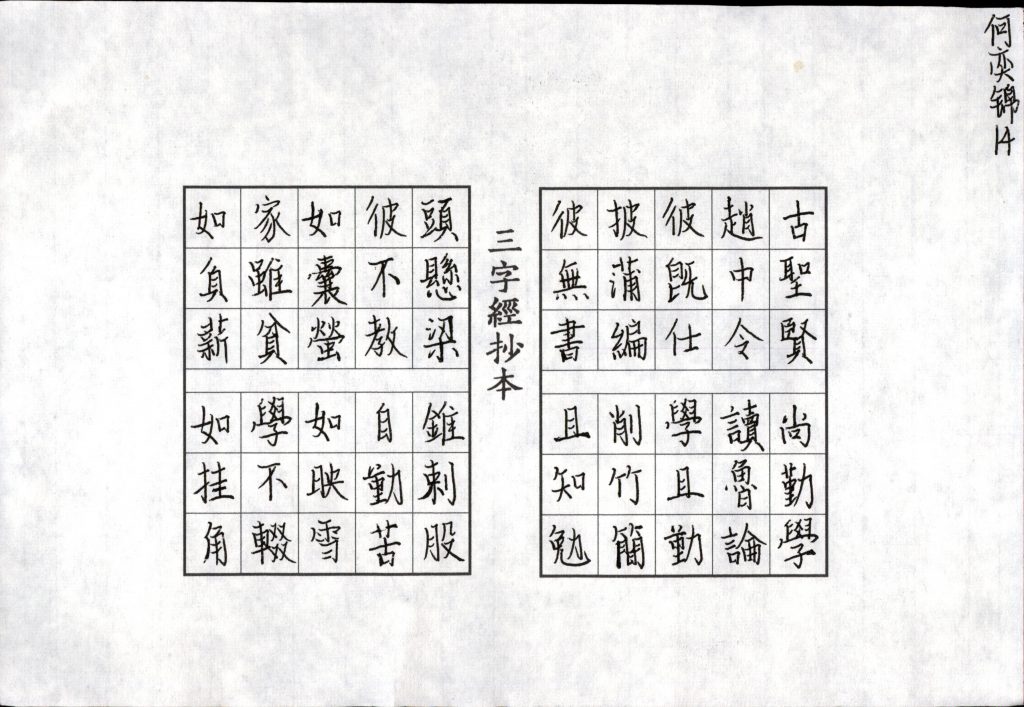 何奕锦14
古聖賢尚勤學
趙中令讀魯論
彼既仕學且勤
披蒲編削竹簡
彼無書且知勉
三字經抄本
頭懸梁錐刺股
彼不教自勤苦
如囊螢如映雪
家雖貧學不輟
如負薪如挂角